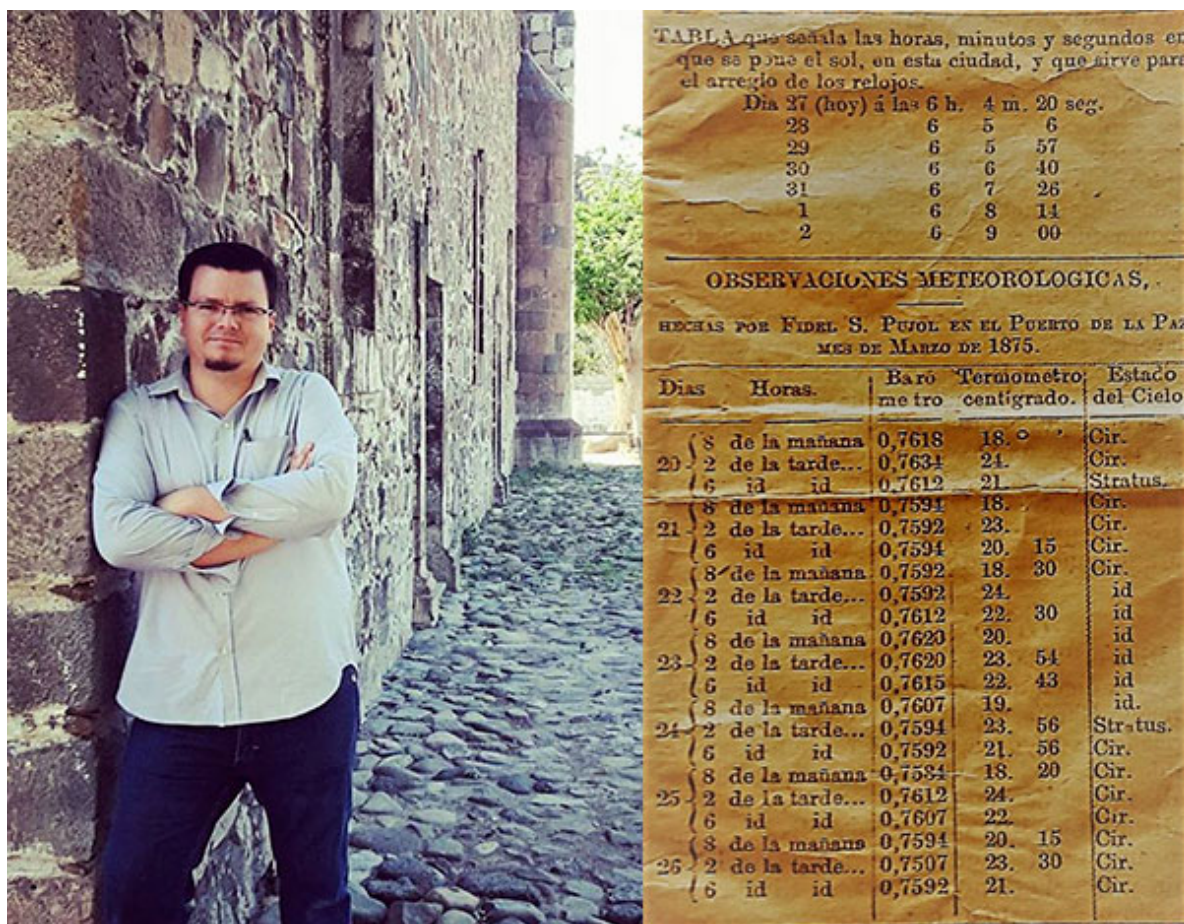 TABLA que señala las horas, minutos y segundos en
que se pone el sol, en esta ciudad, y que sirve para
el arreglo de los relojes.
Dia 27 (hoy) á las 6 h. 4 m. 20 seg.
28 6 5 6
29 6 5 57
30 6 6 40
31 6 7 26
1 6 8 14
2 6 9 00
OBSERVACIONES METEOROLOGICAS,
HECHAS POR FIDEL S. PUJOL EN EL PUERTO DE LA PAZ
MES DE MARZO DE 1875.
Dias Horas. Baró metro Termometro centígrado. Estado del Cielo
8 de la mañana 0,7618 18.° Cir.
20 2 de la tarde... 0,7634 24. Cir.
6 id id 0,7612 21. Stratus.
8 de la mañana 0,7594 18. Cir.
21 2 de la tarde... 0,7592 23. Cir.
6 id id 0,7594 20. 15 Cir.
8 de la mañana 0,7592 18. 30 Cir.
22 2 de la tarde... 0,7592 24. id
6 id id 0,7612 22. 30 id
8 de la mañana 0,7620 20. id
23 2 de la tarde... 0,7620 23. 54 id
6 id id 0,7615 22. 43 id
8 de la mañana 0,7607 19. id.
24 2 de la tarde... 0,7594 23. 56 Stratus.
6 id id 0,7592 21. 56 Cir.
8 de la mañana 0,7584 18. 20 Cir.
25 2 de la tarde... 0,7612 24. Cir.
6 id id 0,7607 22. Cir.
8 de la mañana 0,7594 20. 15 Cir.
26 2 de la tarde... 0,7507 23. 30 Cir.
6 id id 0,7592 21. Cir.